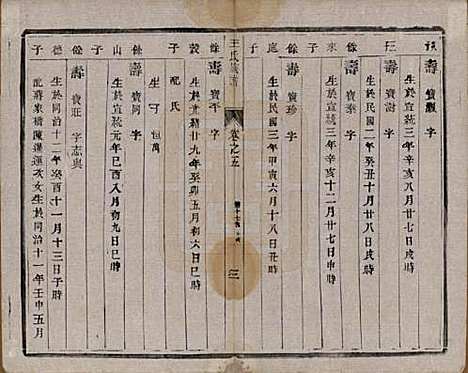 祿 壽 寶瀫 字
生於宣統三年辛亥十二月廿八日戌時
任 壽 寶澍 字
生於民國二年癸丑十月廿八日戌時
餘 壽 寶泰 字
生於宣統三年辛亥十二月廿七日丑時
庭 壽 寶珍 字
子
生於民國三年甲寅六月十八日丑時
王氏族譜
卷之五
三
餘 壽 寶平 字
生於光緒廿九年癸卯五月初六日巳時
穀
子 配氏
生一子 恒萬
餘 壽 寶同 字
山
子
生於宣統元年己酉八月初九日巳時
餘 壽 寶莊 字志與
德
子
生於同治十二年癸酉十一月十三日子時
配蔣家橋陳進運次女生於同治十一年壬申五月